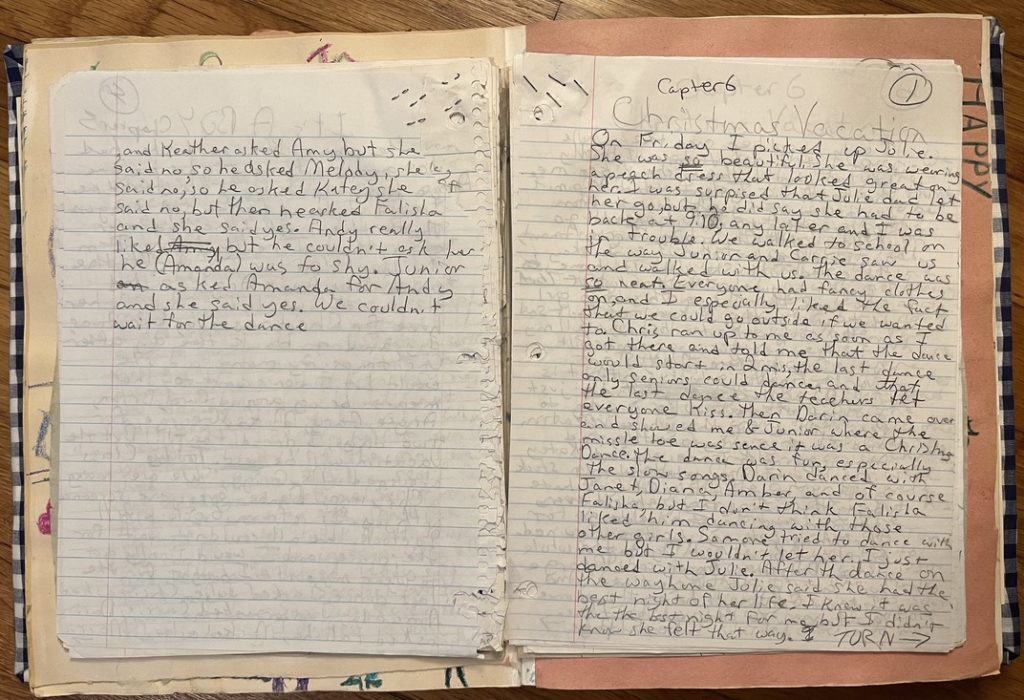 and Keather asked Amy but she
said no so he asked Melody, she
said no, so he asked Katey she
said no, but then he arked Falisha
and she said yes. Andy really
liked Amay but he couldn't ask her
he (Amanda) was to shy. Junior
asked Amanda for Andy
and she said yes. We couldn't
wait for the dance
1
Capter 6
Christmas Vacation
HAPPY
On Friday I picked up Jolie.
She was so beautiful. She was wearing
a peach dress that looked great on
her. I was surpised that Julie dad let
her go, but he did say she had to be
back at 9:10, any later and I was
in trouble. We walked to school on
the way Junior and Carrie saw us
and walked with us. The dance was
so neat. Everyone had fancy clothes
on, and I especially liked the fact
that we could go outside if we wanted
to. Chris ran up to me as soon as I
got there and told me that the dance
would start in 2 mis, the last dance
only seniors could dance, and that
the last dance the teachers let
everyone kiss. Then Darin came over
and showed me & Junior where the
missle toe was sence it was a Christmas
Dance. The dance was fun, especially
the slow songs. Darin danced with
Janet, Diana, Amber, and of course
Falisha, but I don't think Falisha
liked him dancing with those
other girls. Somone tried to dance with
me but I wouldn't let her. I just
danced with Julie. After th dance on
the way home Jolie said she had the
best night of her life. I knew it was
the the best night for me, but I didn't
know she felt that way. I TURN →